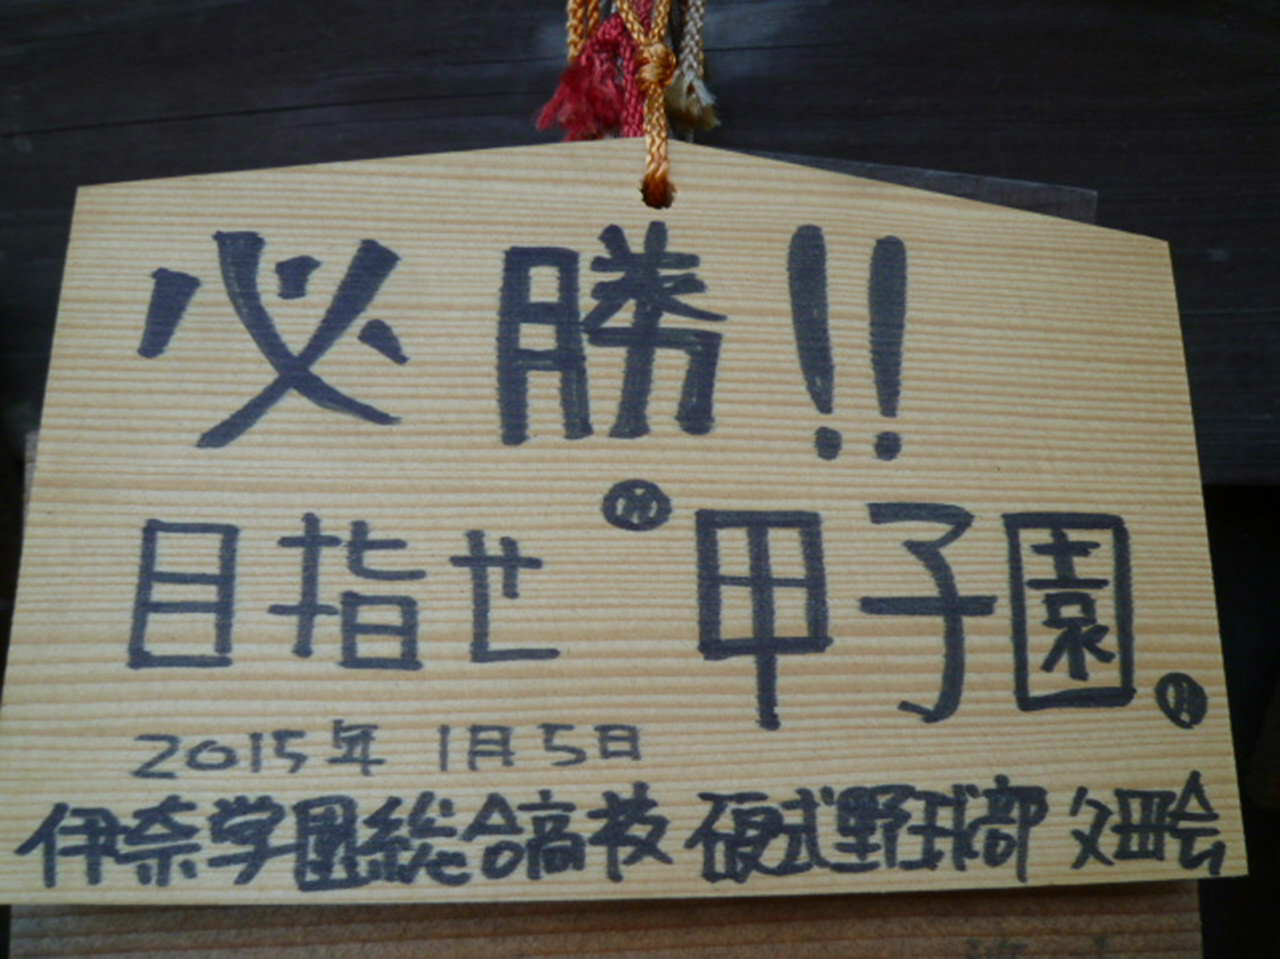 必勝!!
目指せ甲子園
2015年 1月5日
伊奈学園総合高校 硬式野球部 父母会